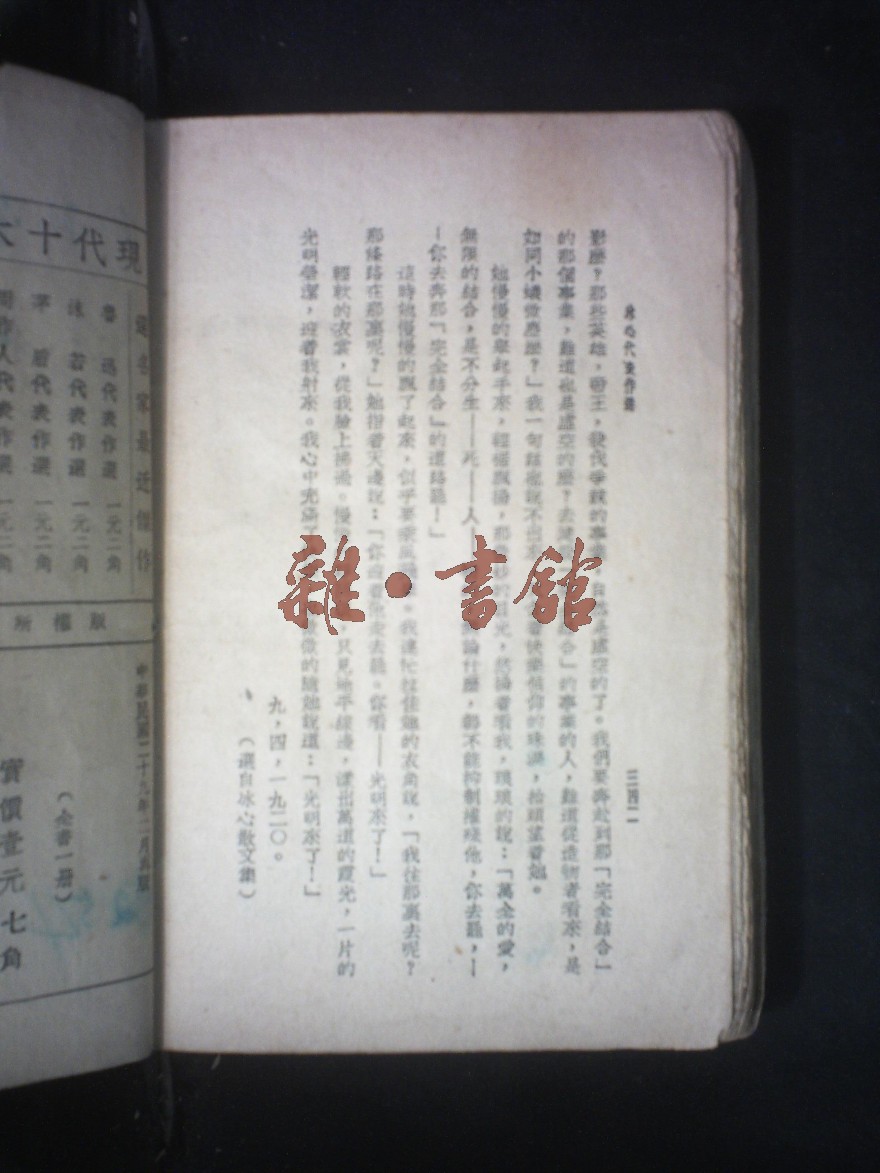 冰心代表作選
三四二
影麼?那些英雄,帝王,殺伐爭競的事業,自然是虛空的了。我們要奔赴到那「完全結合」
的那個事業,難道也是虛空的麼?去建設「完全結合」的事業的人,難道從造物者看來,是
如同小蟻微塵麼?」我一句話也說不出來,快樂信仰的珠淚,抬頭望着她。
她慢慢的舉起手來,輕裾飄揚,那,然揚着看我,琅琅的說:「萬全的愛,
無限的結合,是不分生——死——人論什麼,都不能抑制摧殘他,你去罷,—
—你去奔那「完全結合」的道路罷!」
這時她慢慢的飄了起來,似乎要乘風。我連忙拉住她的衣角說,「我往那裏去呢?
那條路在那裏呢?」她指着天邊說:「你去罷。你看——光明來了!」
輕軟的衣裳,從我臉上拂過。慢,只見地平線邊,漾出萬道的霞光,一片的
光明瑩潔,迎着我射來。我心中充滿了微的隨她說道:「光明來了!」
九,四,一九二〇。
(選自冰心散文集)
雜·書館
現代十大
選名家最近傑作
魯迅代表作選 一元二角
沫若代表作選 一元二角
茅盾代表作選 一元二角
周作人代表作選 一元二角
版權所
中華民國二十九年二月再版
(全書一册)
實價壹元七角